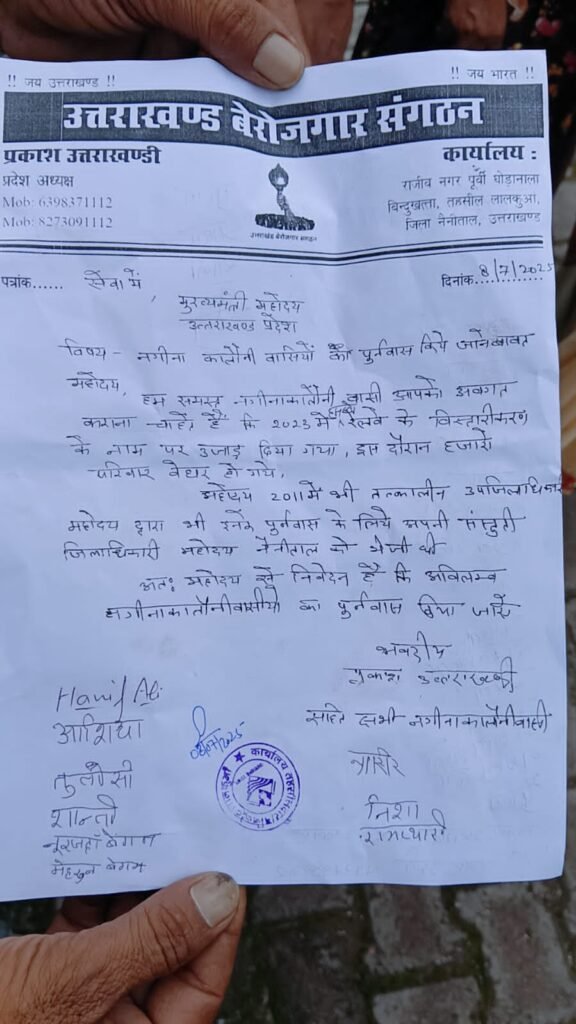 !! जय उत्तराखण्ड !!
!! जय भारत !!
उत्तराखण्ड बेरोजगार संगठन
प्रकाश उत्तराखण्डी
प्रदेश अध्यक्ष
Mob: 6398371112
Mob: 8273091112
कार्यालय :
राजीव नगर पूर्वी घोड़ानाला
बिन्दुखत्ता, तहसील लालकुआ,
जिला नैनीताल, उत्तराखण्ड
उत्तराखंड बेरोजगार संगठन
पत्रांक...... सेवा में,
दिनांक. 8/7/2025
मुख्यमंत्री महोदय
उत्तराखण्ड प्रदेश
विषय - नगीना कालौनी वासियों का पुर्नवास किये जाने बावत
महोदय,
हम समस्त नगीनाकालौनी वासी आपको अवगत
कराना चाहते हैं कि 2023 में रेलवे के विस्तारीकरण
के नाम पर उजाड़ दिया गया, इस दौरान हजारो
परिवार बेघर हो गये,
महोदय 2011 में भी तत्कालीन उपजिलाधिकारी
महोदय द्वारा भी इनके पुर्नवास के लिये अपनी संस्तुती
जिलाधिकारी महोदय नैनीताल को भेजी थी
अतः महोदय से निवेदन है कि अविलम्ब
नगीनाकालौनीवासीयो का पुर्नवास किया जाये
भवदीय
प्रकाश उत्तराखण्डी
सहित सभी नगीनाकालौनीवासी
Hanif Ali
आशिया
तुलसी
शान्ती
नूरजहाँ बेगम
बेगम
निशा
रामप्यारी